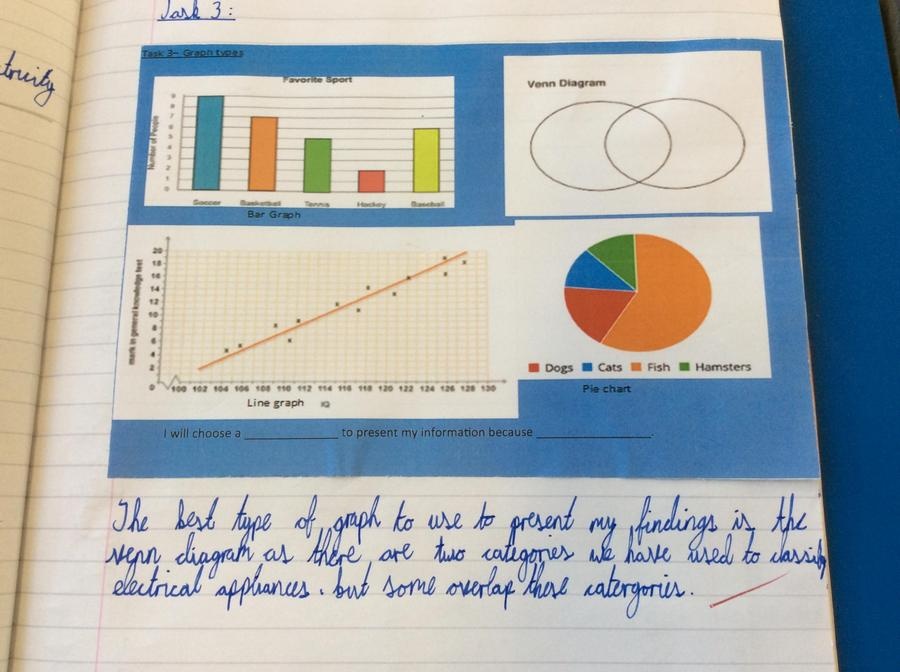 Task 3:
tricity
Task 3– Graph types
Favorite Sport
Number of People
9
8
7
6
5
4
3
2
1
0
Soccer Basketball Tennis Hockey Baseball
Bar Graph
Venn Diagram
mark in general knowledge test
20
18
16
14
12
10
8
6
4
2
0
100 102 104 106 108 110 112 114 116 118 120 122 124 126 128 130
Line graph IQ
Dogs Cats Fish Hamsters
Pie chart
I will choose a ______________ to present my information because _________________.
The best type of graph to use to present my findings is the
venn diagram as there are two categories we have used to classify
electrical appliances. but some overlap these catergories.